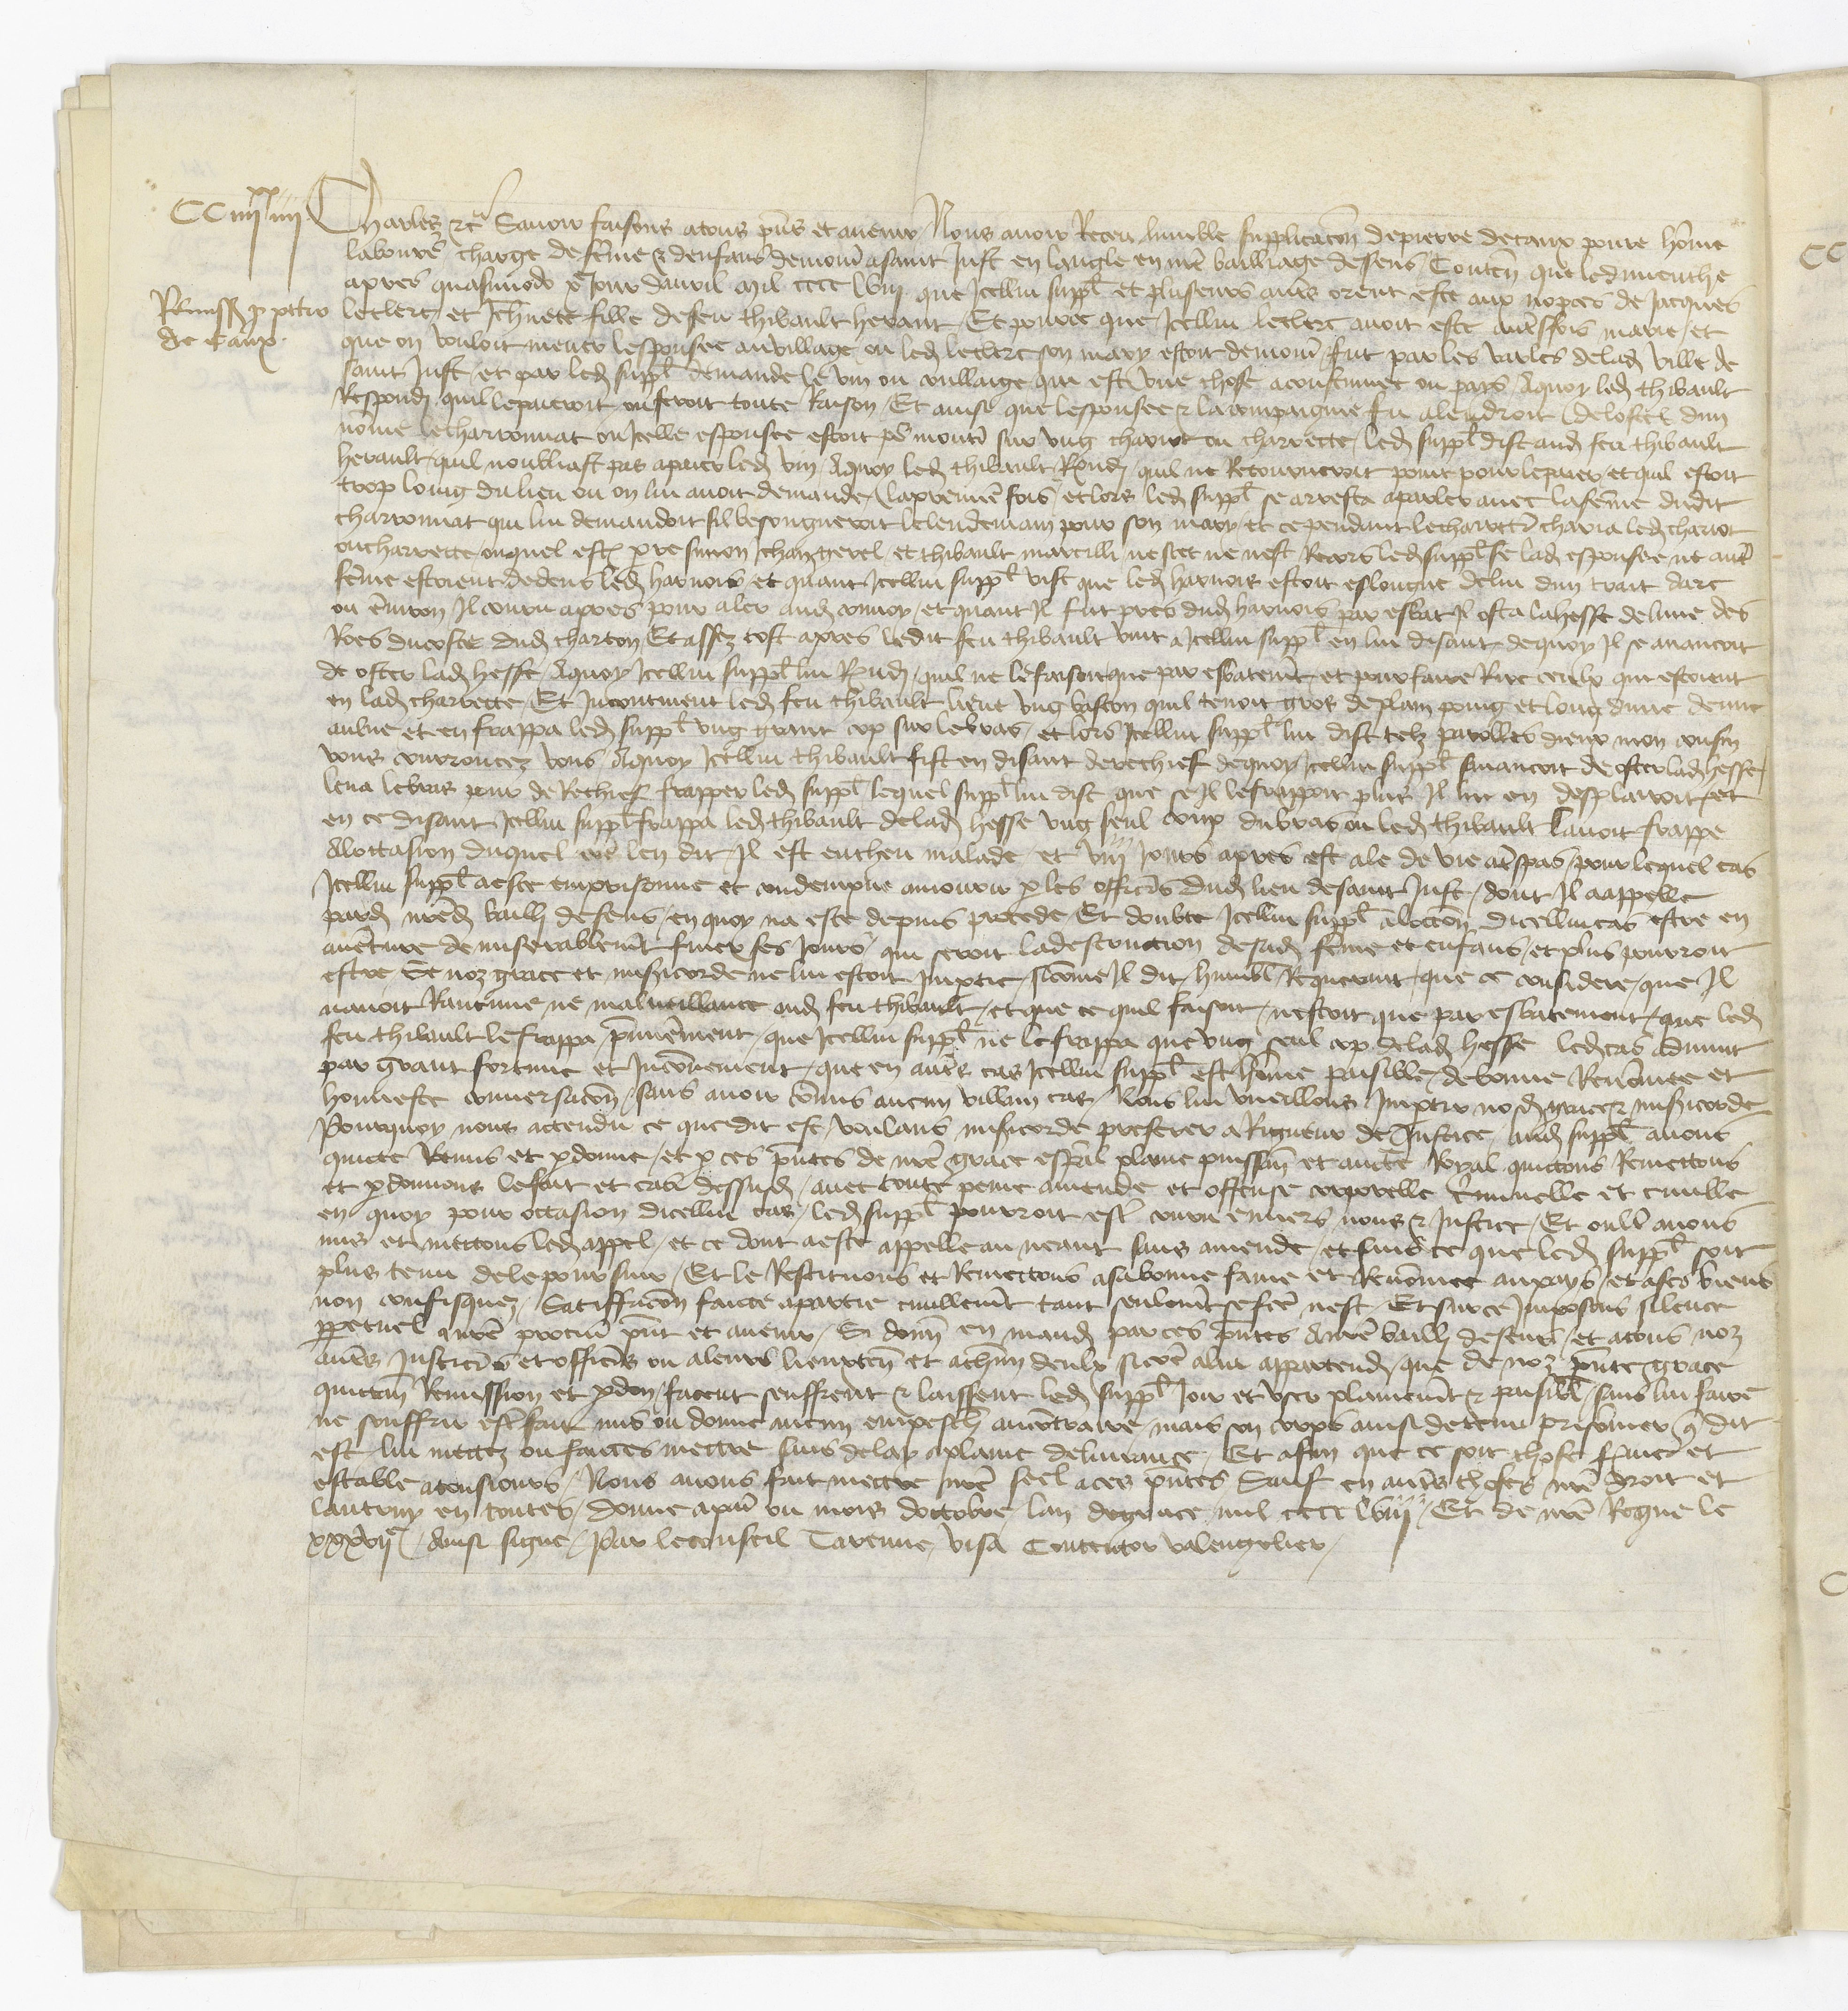 CCIIIIxxIIII
Remiss. p petro
de Caux
Charles etc Savoir faisons a tous pns et avenir Nous avoir Receu lumble supplicacon de pierre de caux povre home
laboure charge de feme & denfans demour a saint Just en langle en nre bailliage de sens Conten que le dimenche
apres quasimodo xe Jour davril mil cccc lviii que Icellui suppl et pluseurs autres orent este aux nopces de Jacques
leclerc et Jehnete fille de feu thibault herault Et pource que Icellui leclerc avoit este autresfois marie et
que on vouloit mener lespousee au village ou led leclerc son mary estoit demour fut par les varles de lad ville de
saint Just et par led suppl demande le vin ou cullaige qui est une chose acoustumee ou pays Aquoy led thibault
Respond quil le paieroit ou feroit toute Raison Et ainsi que lespousee & la compaignie fu a lendroit de lostel dun
nome lecharronnat ou Icelle espousee estoit montee sur ung chariot ou charrette led suppl dist aud feu thibault
herault quil noubliast pas a paier led vin Aquoy led thibault Rond quil ne Retourneroit point pour le paier et quil estoit
trop loing du lieu ou on lui avoit demande la premiere fois et lors led suppl se arresta a parler avec la feme dudit
charronnat qui lui demandoit sil besongneroit le lendemain pour son mary et ce pendant le charretier charia led chariot
ou charrette ouquel est et thibault ne scet ne nest Recors led suppl se lad espousee ne autre
feme estoient dedens led harnois et quant Icellui suppl vist que led harnois estoit eslongne de lui dun trait darc
ou environ Il couru apres pour aler aud convoy et quant Il fut pres dud harnois par esbat Il osta la hesse de lune des
Roes du coste dud charton Et assez tost apres ledit feu thibault vint a Icellui suppl en lui disant de quoy Il se avancoit
de oster lad hesse Aquoy Icellui suppl lui Rond quil ne le faisoit que par esbatement et pour faire Rire ceulx qui estoient
en lad charrette Et Incontinent led feu thibault lieve ung baston quil tenoit gros de plain poing et long dune demie
aulne et en frappa led suppl ung grant cop sur le bras et lors Icellui suppl lui dist telz parolles dieux mon cousin
vous courroucez vous Aquoy Icellui thibault fist en disant derechief de quoy Icellui suppl savancoit de oster lad hesse
leva le bras pour de Rechief frapper led suppl lequel suppl lui dist que se Il le frappoit plus Il lui en desplairoit et
en ce disant Icellui suppl frappa led thibault de lad hesse ung seul coup du bras ou led thibault lavoit frappe
Aloccasion duquel coup len dit Il est encheu malade et viii Jours apres est ale de vie a trespas pour lequel cas
Icellui suppl a este emprisonne et condempne a mourir p les officiers dud lieu de saint Just dont Il a appelle
pard nred bailli de sens en quoy na este depuis procede Et doubte Icellui suppl a loccon dicellui cas estre en
aventure de miserablement finer ses Jours qui seroit la destruction de sad feme et enfans et plus pourroit
estre Se noz grace et misericorde ne lui estoit Impartie sicome Il dit humbl Requerant que ce considere que Il
navoit Rancune ne malveillance oud feu thibault et que ce quil faisoit nestoit que par esbatement que led
feu thibault le frappa premierement que Icellui suppl ne le frappa que ung seul cop de lad hesse led cas advint
par grant fortune et Inconvenient que en autres cas Icellui suppl est home paisible de bonne Renomee et
honneste conversacon sans avoir comis aucun villain cas Nous lui vueillons Impartir nosd grace & misericorde
Pourquoy nous attendu ce que dit est voulans misericorde preferer a Rigueur de Justice Aud suppl avons
quicte Remis et pdonne et p ces pntes de nre grace espal plaine puissan et aucte Royal quictons Remettons
et pdonnons le fait et cas dessusd avec toute peine amende et offense corporelle criminelle et civille
en quoy pour occasion dicellui cas led suppl pourroit estre encouru envers nous & Justice Et oultre avons
mis et mettons led appel et ce dont a este appelle au neant sans amende et sans ce que led suppl soit
plus tenu de le poursuir Et le Restituons et Remettons a sa bonne fame et Renomee au pays et a ses biens
non confisquez Satiffacon faicte a partie civillement tant seulement se fce nest Et sur ce Imposons silence
ppetuel a nre procur pnt et avenir Si donn en mand par ces pntes a nre bailli de sens et a tous noz
autres Justiciers et officiers ou a leurs lieuxten et a chun deulx sicome a lui appartend que de noz pnte grace
quictan Remission et pdon facent seuffrent & laissent led suppl Joir et user plainement & paisibl sans lui faire
ne souffrir estre fait mis ou donne aucun empeschement au contraire mais son corps ainsi detenu prisonnier come dit
est lui mettez ou faictes mettre sans delay a plaine delivrance Et afin que ce soit chose ferme et
estable a tousjours Nous avons fait mettre nre seel a ces pntes Sauf en autres choses nre droit et
lautruy en toutes donne a paris ou mois doctobre lan de grace mil cccc lviii Et de nre Regne le
xxxvie Ainsi signe Par le conseil Tarenne visa Contentor valengelier